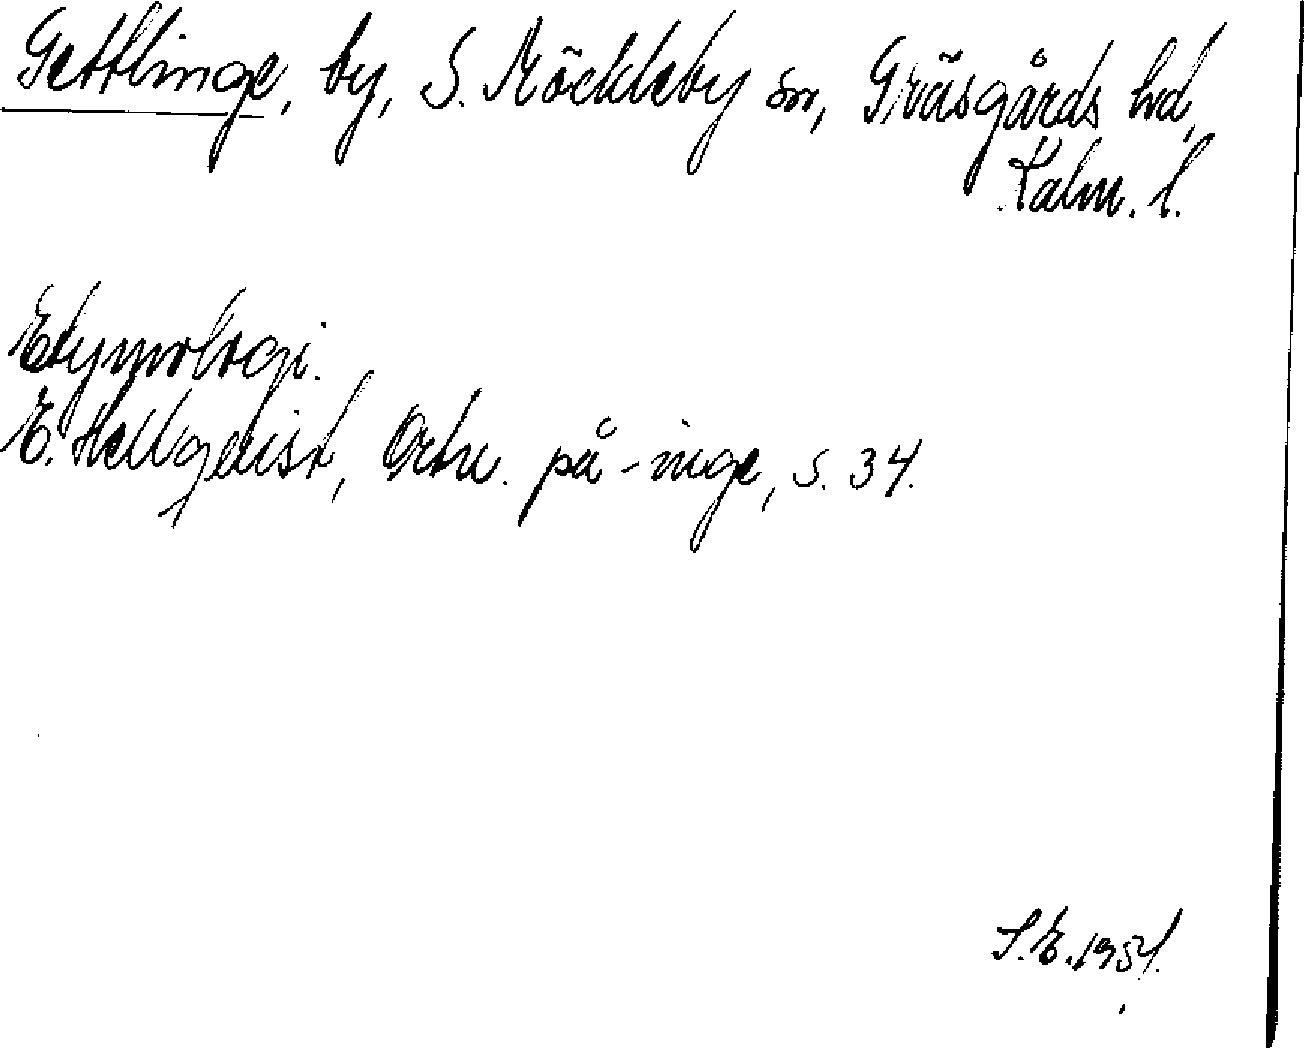 Gettlinge, by, S. Möckleby sn, Gräsgårds hd,
Kalm. l.
Etymologi.
E. Hellquist, Ortn. på -inge, s. 34.
S.E. 1951.